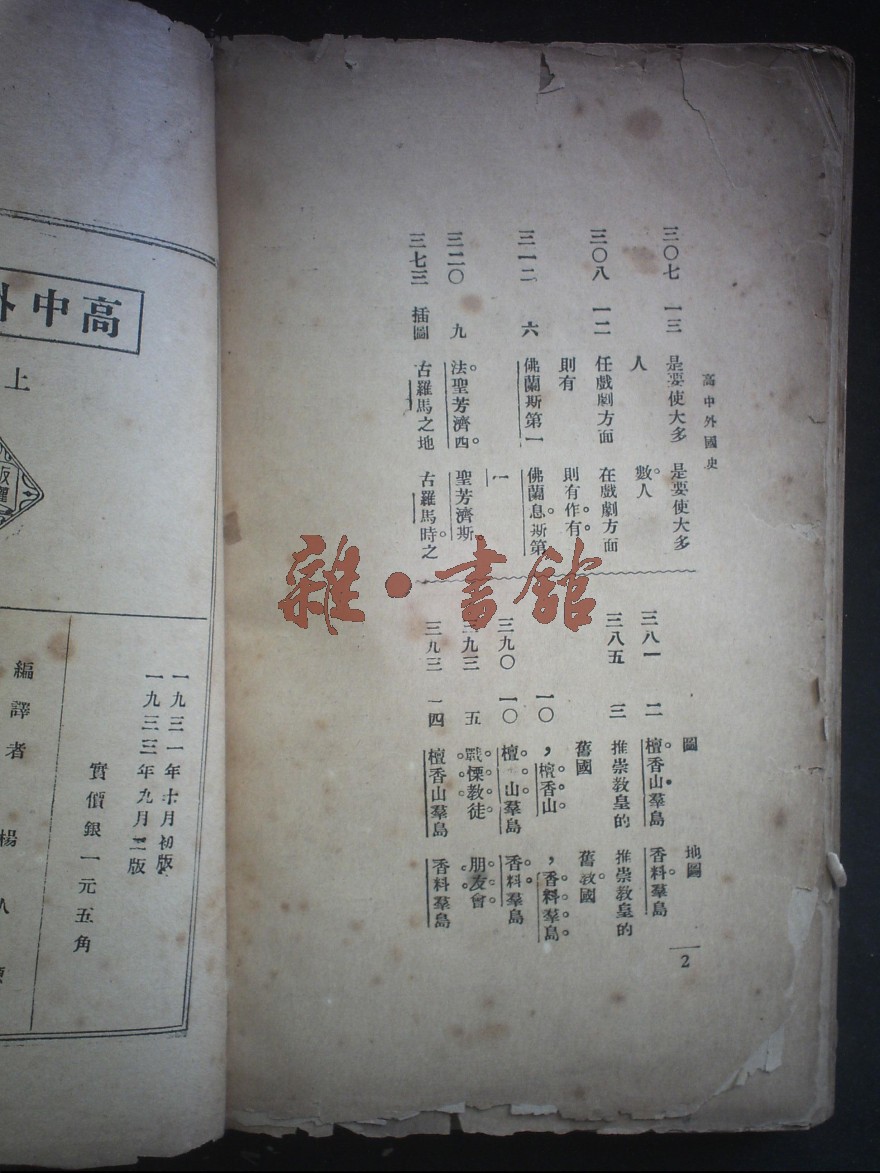 高中外國史
三〇七 一三 是要使大多 是要使大多
人 數人
三〇八 一二 任戲劇方面 在戲劇方面
則有 則有作有
三一二 六 佛蘭斯第一 佛蘭息斯第
一
三二〇 九 法聖芳濟四 聖芳濟斯
三七三 插圖 古羅馬之地 古羅馬時之
圖 地圖
三八一 二 檀香山羣島 香料羣島
三八五 三 推崇教皇的 推崇教皇的
舊國 舊教國
一〇 ，檀香山 ，香料羣島
三九〇 一〇 檀 山羣島 香料羣島
三九三 五 戰慄教徒 朋友會
三九三 一四 檀香山羣島 香料羣島
2
雜·書館
高中外
上
版權
一九三一年十月初版
一九三三年九月三版
實價銀一元五角
編譯者 楊人